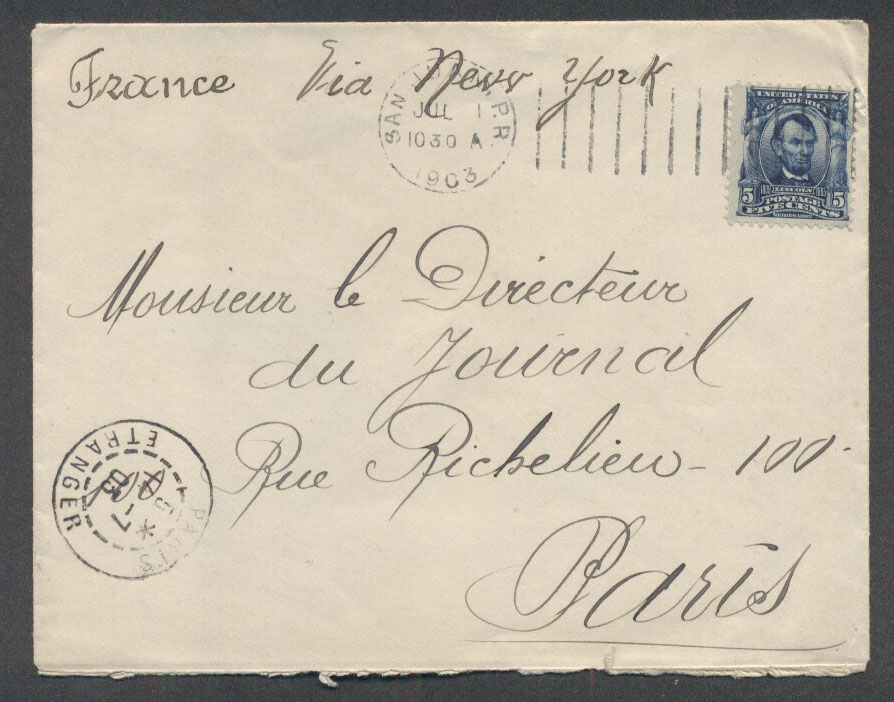 France Via New York
SAN JUAN P.R.
JUL 1
1030 A
1903
UNITED STATES
OF AMERICA
LINCOLN
5 POSTAGE 5
FIVE CENTS
Monsieur le Directeur
du Journal
100 Rue Richelieu - 100 -
Paris
PARIS
ETRANGER